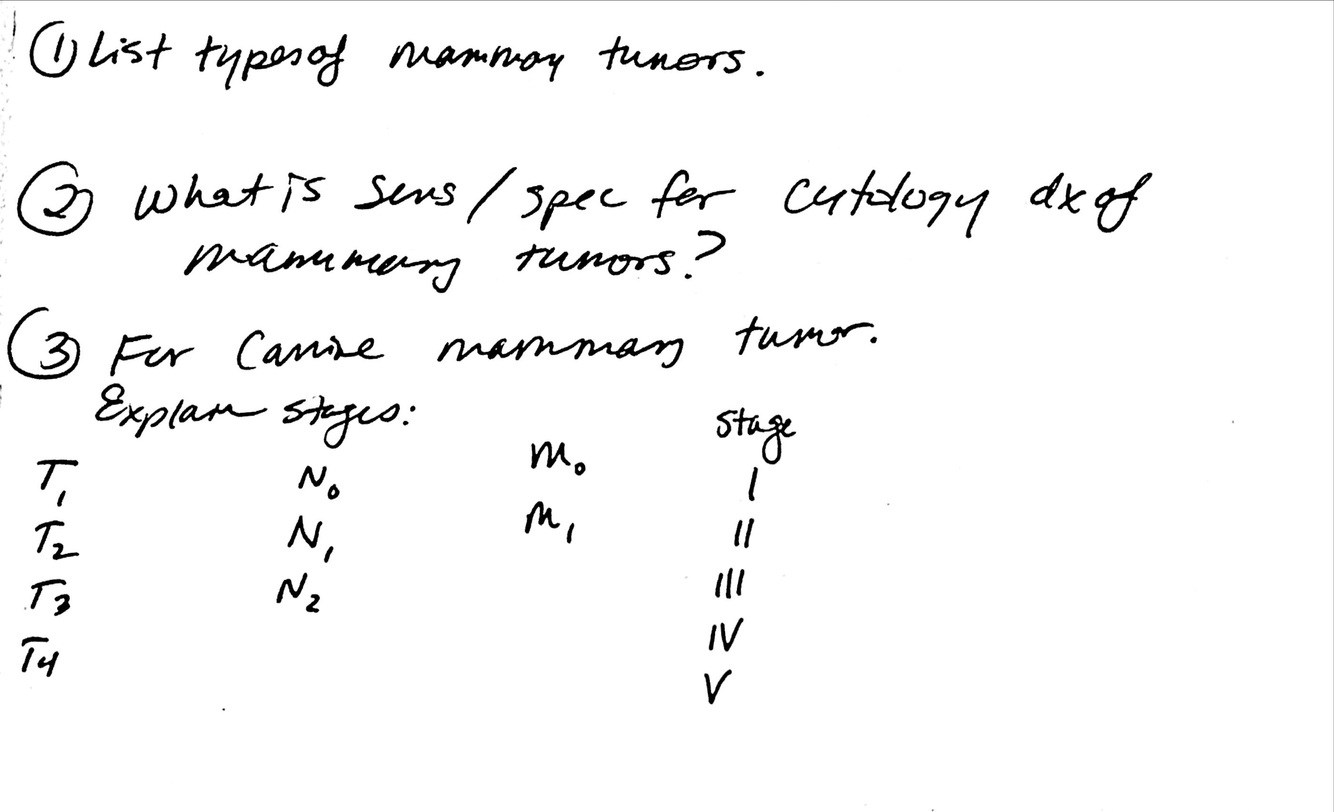 ① List types of mammay tumors.
② What is sens/spec for cytology dx of
mammary tumors?
③ For Canine mammary tumor.
Explain stages:
Stage
T₁ N₀ M₀ I
T₂ N₁ M₁ II
T₃ N₂ III
T₄ IV
V